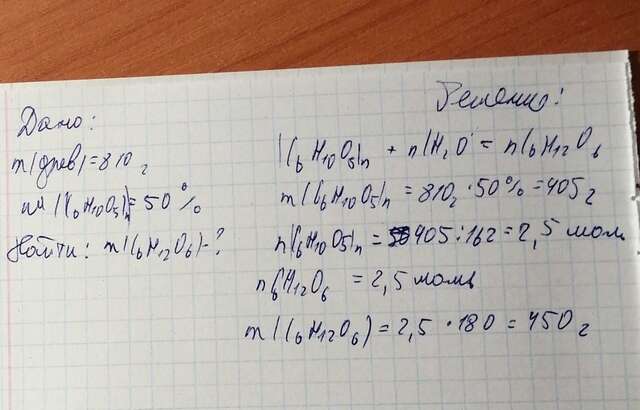 Дано:
m(древ)=810 г
m ((C6H10O5)n)=50%
Найти: m(C6H12O6)-?
Решение:
(C6H10O5)n + n(H2O) = nC6H12O6
m(C6H10O5)n = 810г·50%=405 г
n(C6H10O5)n = 405:162=2,5 моль
nC6H12O6 = 2,5 моль
m(C6H12O6)=2,5·180=450 г